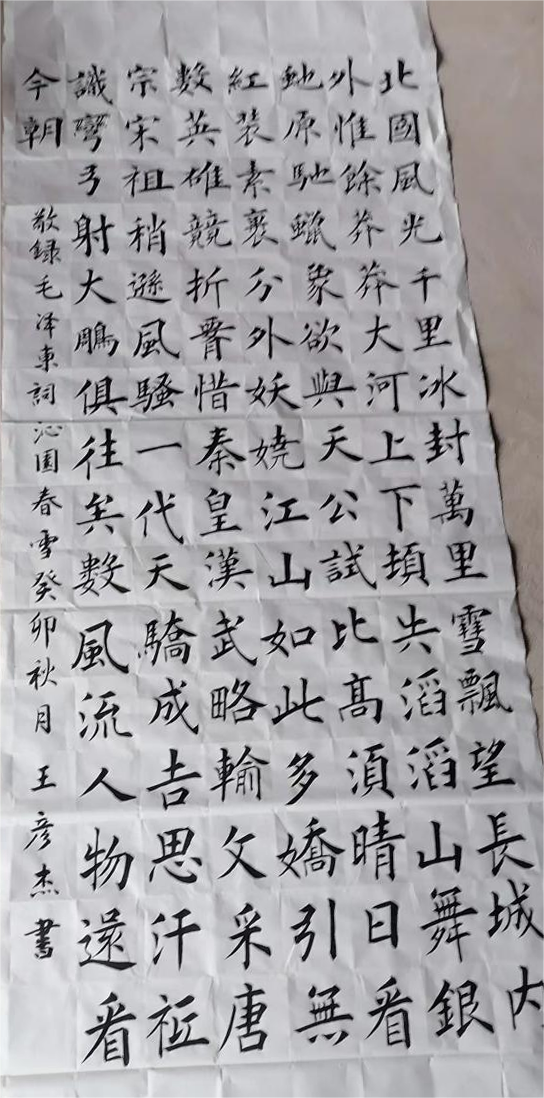 北國風光千里冰封萬里雪飄望長城内
外惟餘莽莽大河上下頓失滔滔山舞銀
虵原馳蠟象欲與天公試比髙湏晴日看
紅裝素裹分外妖嬈江山如此多嬌引無
數英雄競折腰惜秦皇漢武略輸文采唐
宗宋祖稍遜風騷一代天驕成吉思汗祗
識彎弓射大鵰俱往矣數風流人物還看
今朝
敬録毛泽東詞沁園春雪癸卯秋月王彦杰書